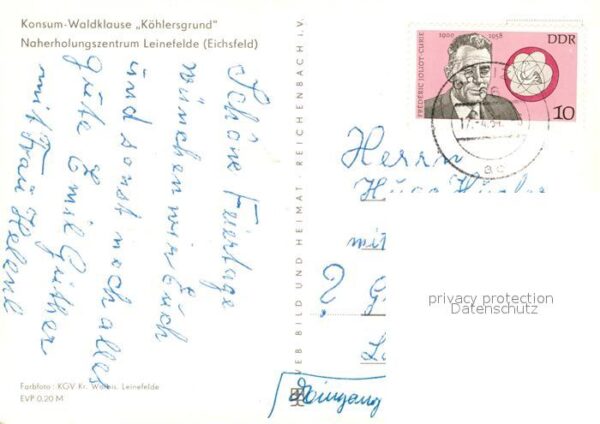 Konsum-Waldklause „Köhlersgrund"
Naherholungszentrum Leinefelde (Eichsfeld)
Schöne Feiertage
wünschen wir Euch
und sonst noch alles
gute Emil Güther
mit Frau Helene
Farbfoto: KGV Kr. Worbis, Leinefelde
EVP 0,20 M
VEB BILD UND HEIMAT · REICHENBACH I.V.
1900 1958
DDR
FRÉDÉRIC JOLIOT-CURIE
10
Herrn
mit
?
Eingang
privacy protection
Datenschutz